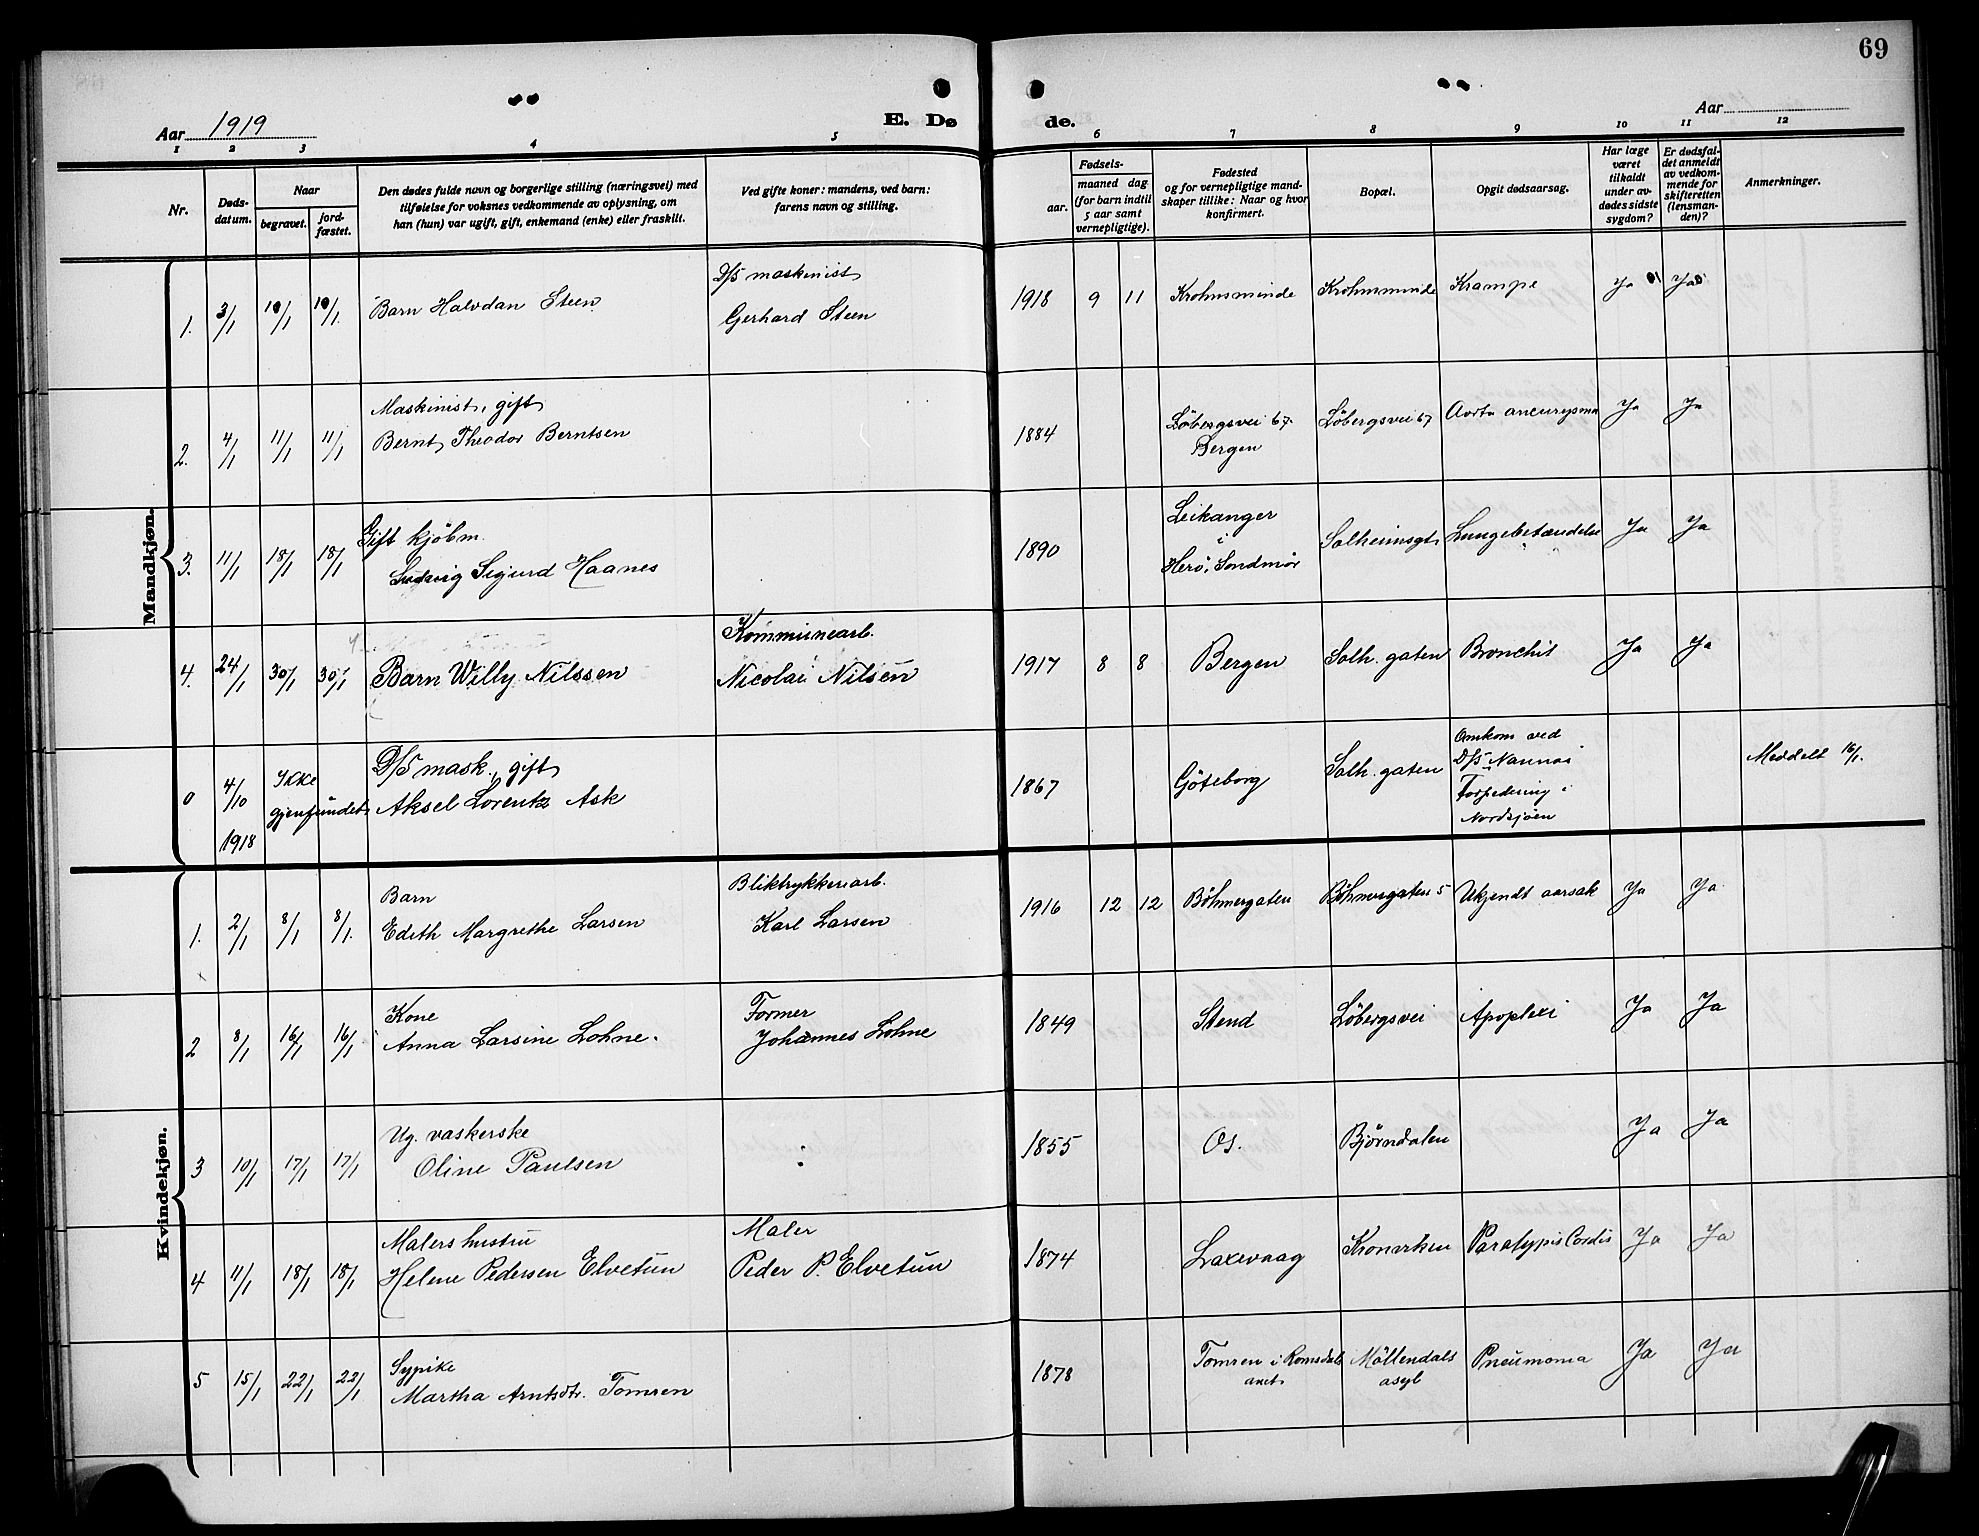 69
Aar 1919
E. Dø
de.
Aar
1 2 3 4 5 6 7 8 9 10 11 12
Nr.
Døds-
datum.
Naar
begravet.
jord-
fæstet.
Den dødes fulde navn og borgerlige stilling (næringsvei) med
tilføielse for voksnes vedkommende av oplysning, om
han (hun) var ugift, gift, enkemand (enke) eller fraskilt.
Ved gifte koner: mandens, ved barn:
farens navn og stilling.
Fødsels-
aar.
maaned dag
(for barn indtil
5 aar samt
vernepligtige).
Fødested
og for vernepligtige mand-
skaper tillike: Naar og hvor
konfirmert.
Bopæl.
Opgit dødsaarsag.
Har læge
været
tilkaldt
under av-
dødes sidste
sygdom?
Er dødsfal-
det anmeldt
av vedkom-
mende for
skifteretten
(lensman-
den)?
Anmerkninger.
Mandkjøn.
D/S maskinist
1. 3/1 10/1 10/1. Barn Halvdan Steen Gerhard Steen 1918 9 11 Krohnsminde Krohnsminde Krampe Ja Ja
Maskinist, gift
2. 4/1 11/1 11/1 Bernt Theodor Berntsen 1884 Löbergsvei 67. Löbergsvei 67 Aorta aneurysma Ja Ja
Bergen
Gift kjöbm. Leikanger
3. 11/1 18/1 18/1 Ludvig Sigurd Haanes 1890 i Solheimsgt. Lungebetændelse Ja Ja
Herö, Söndmör
Kommunearb.
4. 24/1 30/1 30/1 Barn Willy Nilssen Nicolai Nilsen 1917 8 8 Bergen Solh. gaten Bronchit Ja Ja
D/S mask., gift Omkom ved
0 4/10 Ikke Aksel Lorentz Ask 1867 Göteborg Solh. gaten D/S Nannas Meddelt 16/1.
1918 gjenfundet. Torpedering i
Nordsjöen
Kvindekjøn.
Barn Bliktrykkeriarb.
1. 2/1 8/1 8/1. Edith Margrethe Larsen Karl Larsen 1916 12 12 Böhmergaten Böhmergaten 5 Ukjendt aarsak Ja Ja
Kone Former
2 8/1 16/1 16/1 Anna Larsine Lohne. Johannes Lohne 1849 Stend Löbergsvei Apoplexi Ja Ja
Ug. vaskerske
3 10/1 17/1 17/1 Oline Paulsen 1855 Os. Björndalen Ja Ja
Malers hustru Maler
4 11/1 18/1 18/1 Helene Pedersen Elvetun Peder P. Elvetun 1874 Laxevaag Kronerken Paralysis Cordis Ja Ja
Sypike
5 15/1 22/1 22/1 Martha Arntsdtr. Tomren 1878 Tomren i Romsdals Möllendals Pneumonia Ja Ja
amt. asyl